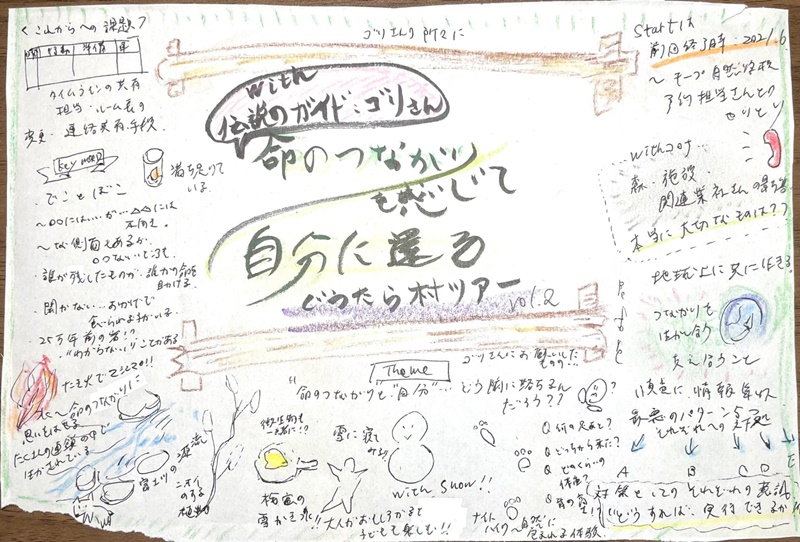 <これからの課題>
タイムラインの共有
担当・ルーム長の
変更・連絡共有手段
Key word
満ち足りて
いる
・でこぼこ
〜〇〇には…が…△△には
不向き
〜な側面もあるが
〇〇ないで3も
・誰が残したものが誰かの命を
助ける
・聞かない…おかげで
食べられるきかいる
・25万年前の岩!?
"わからない"ことがある
たき火でマシュマロ!!
命のつながりに
思いをはせる
たくさんの連鎖の中で
生かされている
源流
富士山の
ニオイ
のする
植物
ゴリさんの所々に
with
伝説のガイド:ゴリさん
命のつながり
を感じて
自分に還る
ぐうたら村ツアー
vol.2
Theme
ゴリさんにお願いした
もの…
"命のつながりと"自分"…どう胸に落ちるん
だろう??
微生物も
一緒に!?
雪に寝て
みる
with Snow!!
梅蜜の
雪かき氷!!
大人がおもしろがると
子どもも楽しむ!!
Q 何の足あと?
Q どっちから来た?
Q どのくらいの
体重?
ナイト
ハイク〜自然に
包まれる体験
Startは
前回終了時・2021.6
〜キープ自然学校
予約担当さんとの
やりとり
withコロナ…
森、施設、
関連業社さんの影響
本当に大切なものは??
地球上に共に生きる
つながりを
生かし合う
支え合うこと
慎重に、情報集収
最悪のパターン5段
それぞれへの対応
A B C D E
対策としてのそれぞれの意識
どうすれば、実行できるか